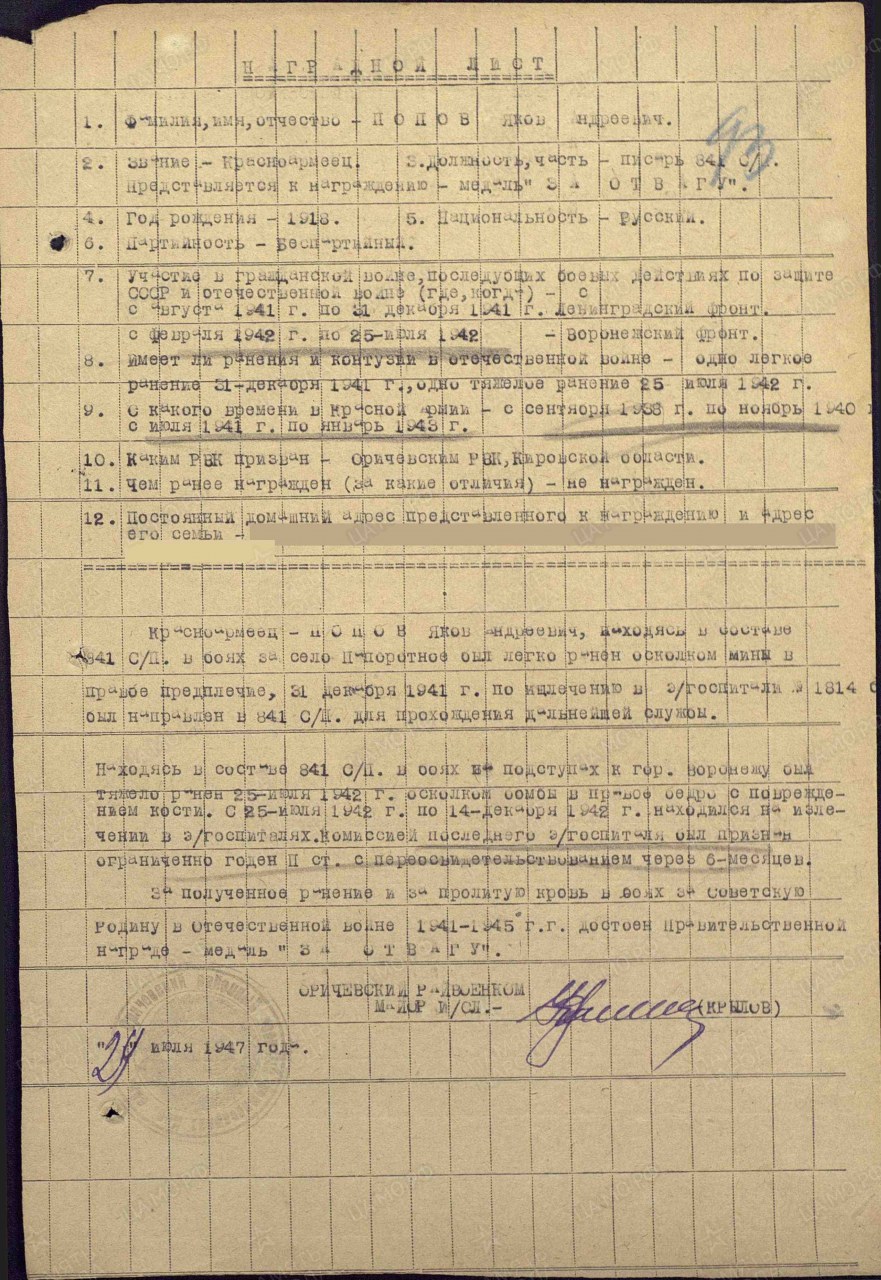 НАГРАДНОЙ ЛИСТ
93
1. Фамилия,имя,отчество - ПОПОВ Яков Андреевич.
2. Звание - Красноармеец. 3.Должность,часть - писарь 841 С/П.
Представляется к награждению - медаль" ЗА ОТВАГУ".
4. Год рождения - 1918. 5. Национальность - Русский.
6. Партийность - Беспартийный.
7. Участие в гражданской войне,последующих боевых действиях по защите
СССР и отечественной войне (где,когда) - с
с август 1941 г. по 31 декабря 1941 г. Ленинградский фронт.
с февраля 1942 г. по 25-июля 1942 - Воронежский фронт.
8. Имеет ли ранения и контузии в отечественной войне - одно легкое
ранение 31-декабря 1941 г.,одно тяжелое ранение 25 июля 1942 г.
9. С какого времени в Красной Армии - с сентября 1938 г. по ноябрь 1940 г
с июля 1941 г. по январь 1943 г.
10. Каким РВК призван - Оричевским РВК,Кировской области.
11. Чем ранее награжден (за какие отличия) - не награжден.
12. Постоянный домашний адрес представленного к награждению и адрес
его семьи -
Красноармеец - ПОПОВ Яков Андреевич, находясь в составе
841 С/П. в боях за село Папоротное был легко ранен осколком мины в
правое предплечие, 31 декабря 1941 г. по излечению в э/госпитали № 1814
был направлен в 841 С/П. для прохождения дальнейшей службы.
Находясь в составе 841 С/П. в боях на подступах к гор. Воронежу был
тяжело ранен 25-июля 1942 г. осколком бомбы в правое бедро с поврежде-
нием кости. С 25-июля 1942 г. по 14-декабря 1942 г. находился на изле-
чении в э/госпиталях.Комиссией последнего э/госпиталя был признан
ограниченно годен II ст. с переосвидетельствованием через 6-месяцев.
За полученное ранение и за пролитую кровь в боях за Советскую
Родину в Отечественной войне 1941-1945 г.г. достоен Правительственной
награде - медаль " ЗА ОТВАГУ".
ОРИЧЕВСКИЙ РАЙВОЕНКОМ
МАЙОР И/СЛ.- (КРЫЛОВ)
"24" июля 1947 года.